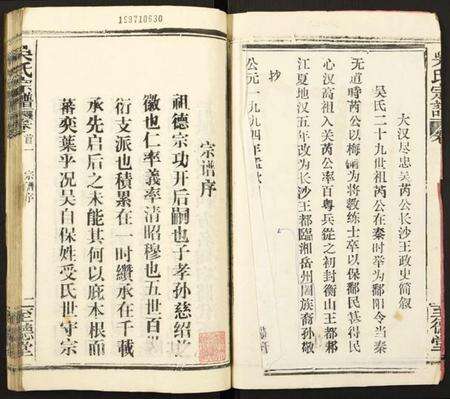 吴氏宗谱
卷
至德堂
大汉尽忠吴芮公长沙王政史简叙
吴氏二十九世祖芮公在秦时举为鄱阳令当秦
无道時芮公以梅鋗为将教练士卒以保鄱民甚得民
心汉高祖入关芮公率百粤兵從之初封衡山王都邾
江夏地汉五年改为长沙王都臨湘岳州囻族裔孙敬
抄
公元一九九四年孟
159710630
宗谱序
祖德宗功开后嗣也子孝孙慈绍
徽也仁率義率清昭穆也五世百
衍支派也積累在一时纘承在千載
承先启后之未能其何以庇本根而
蕃奕葉乎况吴自保姓受氏世守宗
吴氏宗譜
卷首一
宗谱序
一
至德堂